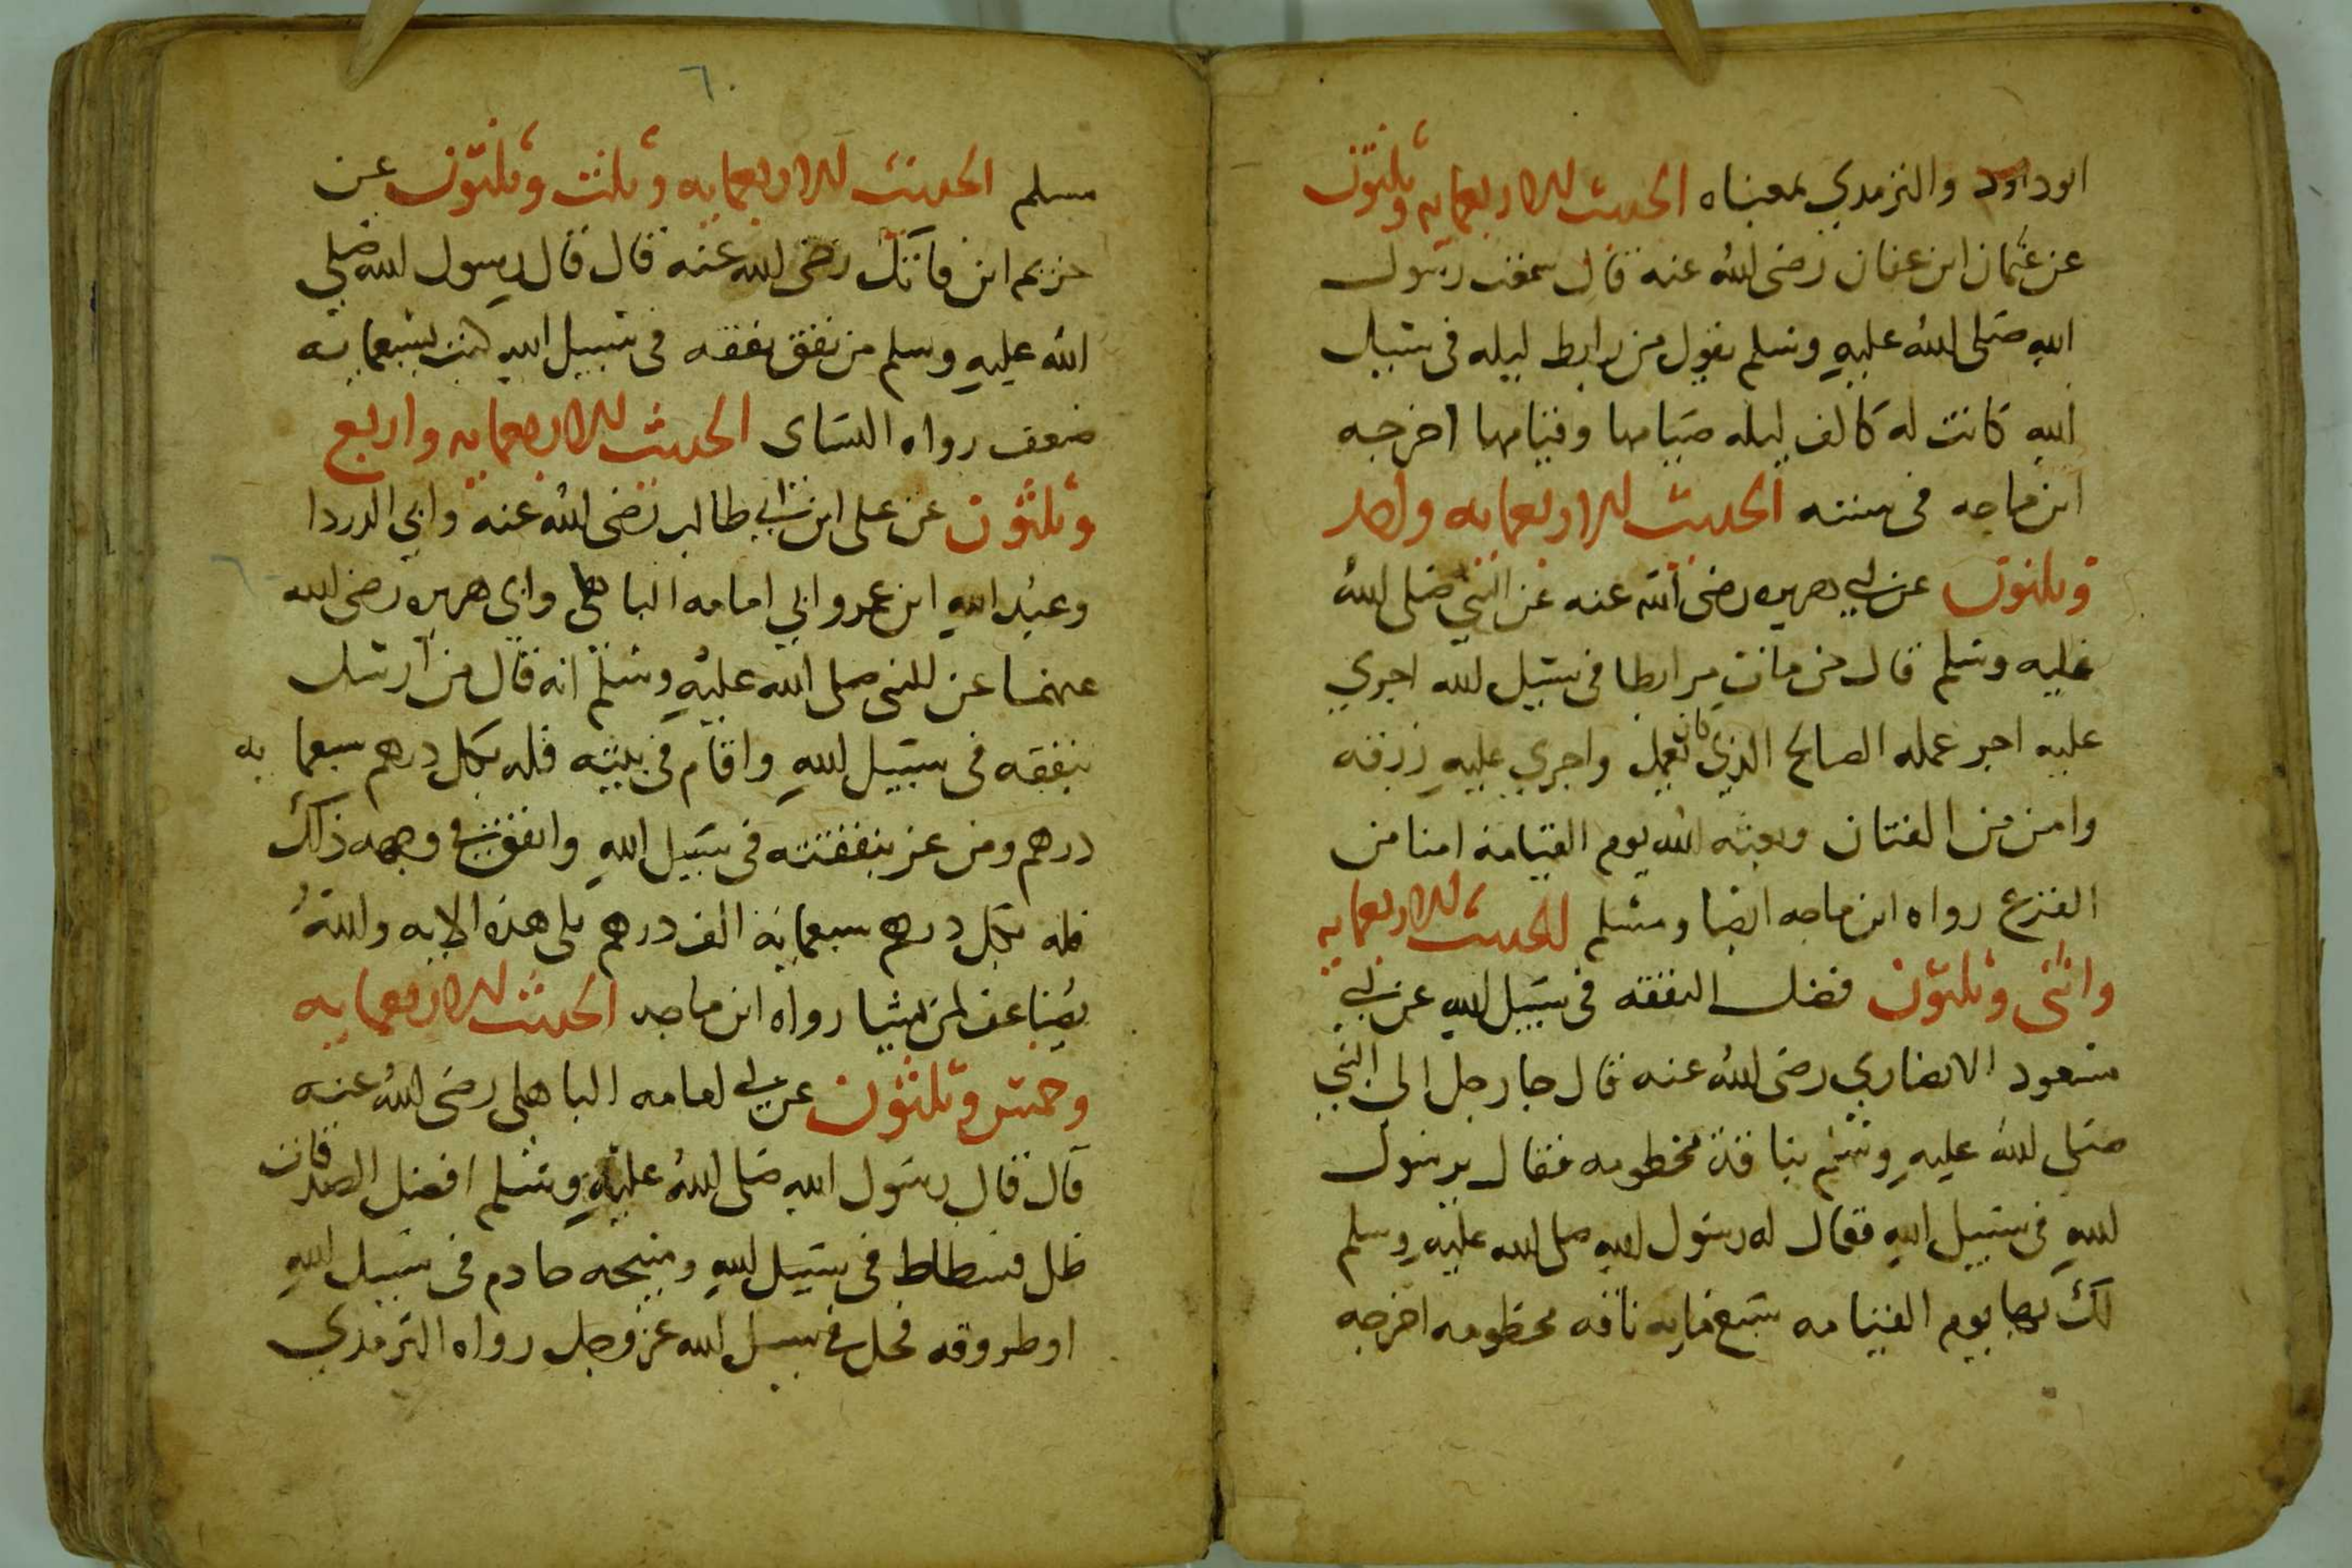 ابوداود والترمدي بمعناه الحديث الاربعمايه وثلثون
عن عثمان ابن عفان رضى الله عنه قال سمعت رسول
الله صلى الله عليه وسلم يقول من رابط ليله فى سبيل
الله كانت له كالف ليله صيامها وقيامها اخرجه
ابن ماجه فى سننه الحديث الاربعمايه واحد
وثلثون عن ابي هريره رضى الله عنه عن النبي صلى الله
عليه وسلم قال من مات مرابطا فى سبيل الله اجري
عليه اجر عمله الصالح الذي كان يعمل واجري عليه رزقه
وامن من الفتان وبعثه الله يوم القيامة امنا من
الفزع رواه ابن ماجه ايضا ومسلم الحديث الاربعمايه
واثنى وثلثون فضل النفقه فى سبيل الله عن ابي
مسعود الانصاري رضى الله عنه قال جا رجل الى النبي
صلى الله عليه وسلم بناقة مخطومه فقال يرسول
الله فى سبيل الله فقال له رسول الله صلى الله عليه وسلم
لك بها يوم القيامه سبع مايه ناقه مخطومه اخرجه
٦٠
مسلم الحديث الاربعمايه وثلث وثلثون عن
خزيم ابن فاتك رضى الله عنه قال قال رسول الله صلى
الله عليه وسلم من نفق نفقه فى سبيل الله كتبت بسبعمايه
ضعف رواه النساى الحديث الاربعمايه واربع
وثلثون عن على ابن ابي طالب رضى الله عنه وابي الدردا
وعبد الله ابن عمر وابي امامه الباهلى وابى هريره رضى الله
عنهما عن النبى صلى الله عليه وسلم انه قال من ارسل
بنفقه فى سبيل الله واقام فى بيته فله بكل درهم سبعما يه
درهم ومن غز بنفقته فى سبيل الله وانفق فى وجهه ذلك
فله بكل درهم سبعمايه الف درهم تلى هذه الايه والله
يضاعف لمن يشا رواه ابن ماجه الحديث الاربعمايه
وخمس وثلثون عن ابي امامه الباهلى رضى الله عنه
قال قال رسول الله صلى الله عليه وسلم افضل الصدقات
ظل فسطاط فى سبيل الله ومنيحه خادم فى سبيل الله
او طروقه فحل فى سبيل الله عز وجل رواه الترمدي